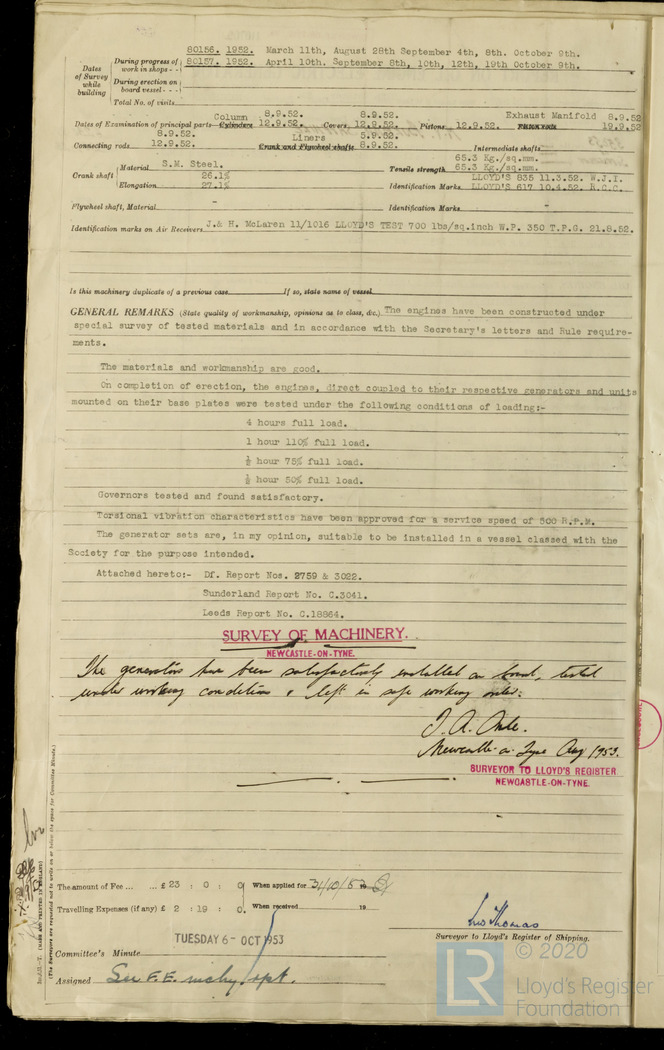 80156. 1952. March 11th, August 28th September 4th, 8th. October 9th.
Dates of Survey while building
During progress of work in shops - - 80157. 1952. April 10th. September 8th, 10th, 12th, 19th October 9th.
During erection on board vessel - - -
Total No. of visits
Column 8.9.52. 8.9.52. Exhaust Manifold 8.9.52
Dates of Examination of principal parts—Cylinders 12.9.52. Covers 12.9.52. Pistons 12.9.52. 19.9.52
8.9.52. Liners 5.9.52.
Connecting rods 12.9.52. Crank and Flywheel shafts 8.9.52. Intermediate shafts
65.3 Kg./sq.mm.
Crank shaft Material S.M. Steel. Tensile strength 65.3 Kg./sq.mm.
26.1% LLOYD'S 835 11.3.52. W.J.I.
Elongation 27.1% Identification Marks LLOYD'S 617 10.4.52. R.C.C.
Flywheel shaft, Material - Identification Marks -
Identification marks on Air Receivers J.& H. McLaren 11/1016 LLOYD'S TEST 700 lbs/sq.inch W.P. 350 T.P.G. 21.8.52.
Is this machinery duplicate of a previous case If so, state name of vessel
GENERAL REMARKS (State quality of workmanship, opinions as to class, &c.) The engines have been constructed under
special survey of tested materials and in accordance with the Secretary's letters and Rule require-
ments.
The materials and workmanship are good.
On completion of erection, the engines, direct coupled to their respective generators and units
mounted on their base plates were tested under the following conditions of loading:-
4 hours full load.
1 hour 110% full load.
½ hour 75% full load.
½ hour 50% full load.
Governors tested and found satisfactory.
Torsional vibration characteristics have been approved for a service speed of 500 R.P.M.
The generator sets are, in my opinion, suitable to be installed in a vessel classed with the
Society for the purpose intended.
Attached hereto:- Df. Report Nos. 2759 & 3022.
Sunderland Report No. C.3041.
Leeds Report No. C.18864.
SURVEY OF MACHINERY.
NEWCASTLE-ON-TYNE.
The generators have been satisfactorily installed on board, tested
under working conditions & left in safe working order.
Newcastle on Tyne Aug 1953.
SURVEYOR TO LLOYD'S REGISTER
NEWCASTLE-ON-TYNE.
(The Surveyors are requested not to write on or below the space for Committee Minute.)
(MADE AND PRINTED IN ENGLAND)
The amount of Fee ... ... £ 23 : 0 : 0 When applied for 3/10/53 19
Travelling Expenses (if any) £ 2 : 19 : 0. When received 19
Thomas
Surveyor to Lloyd's Register of Shipping.
TUESDAY 6 - OCT 1953
Committee's Minute
Assigned See F.E. mchy. rpt.
© 2020
LR
Lloyd's Register
Foundation